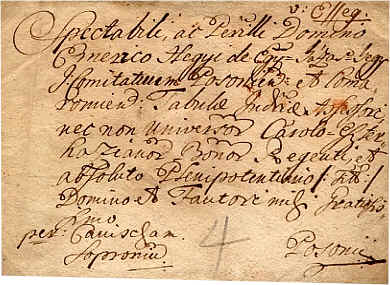 v: Esseg
Spectabili, ac Perilli Domino
Emerico Hegyi de
I: Comitatuum Posonien: et Coma
romien: Tabulæ Judriæ Assessori
nec non Universor Carolo-Eszter
hazianor Bonor Regenti, et
absoluto Plenipotentiario /: Tit :/
Domino et Fautori mihi Gratiosis
simo
per:
Sopronium
4
Posonii